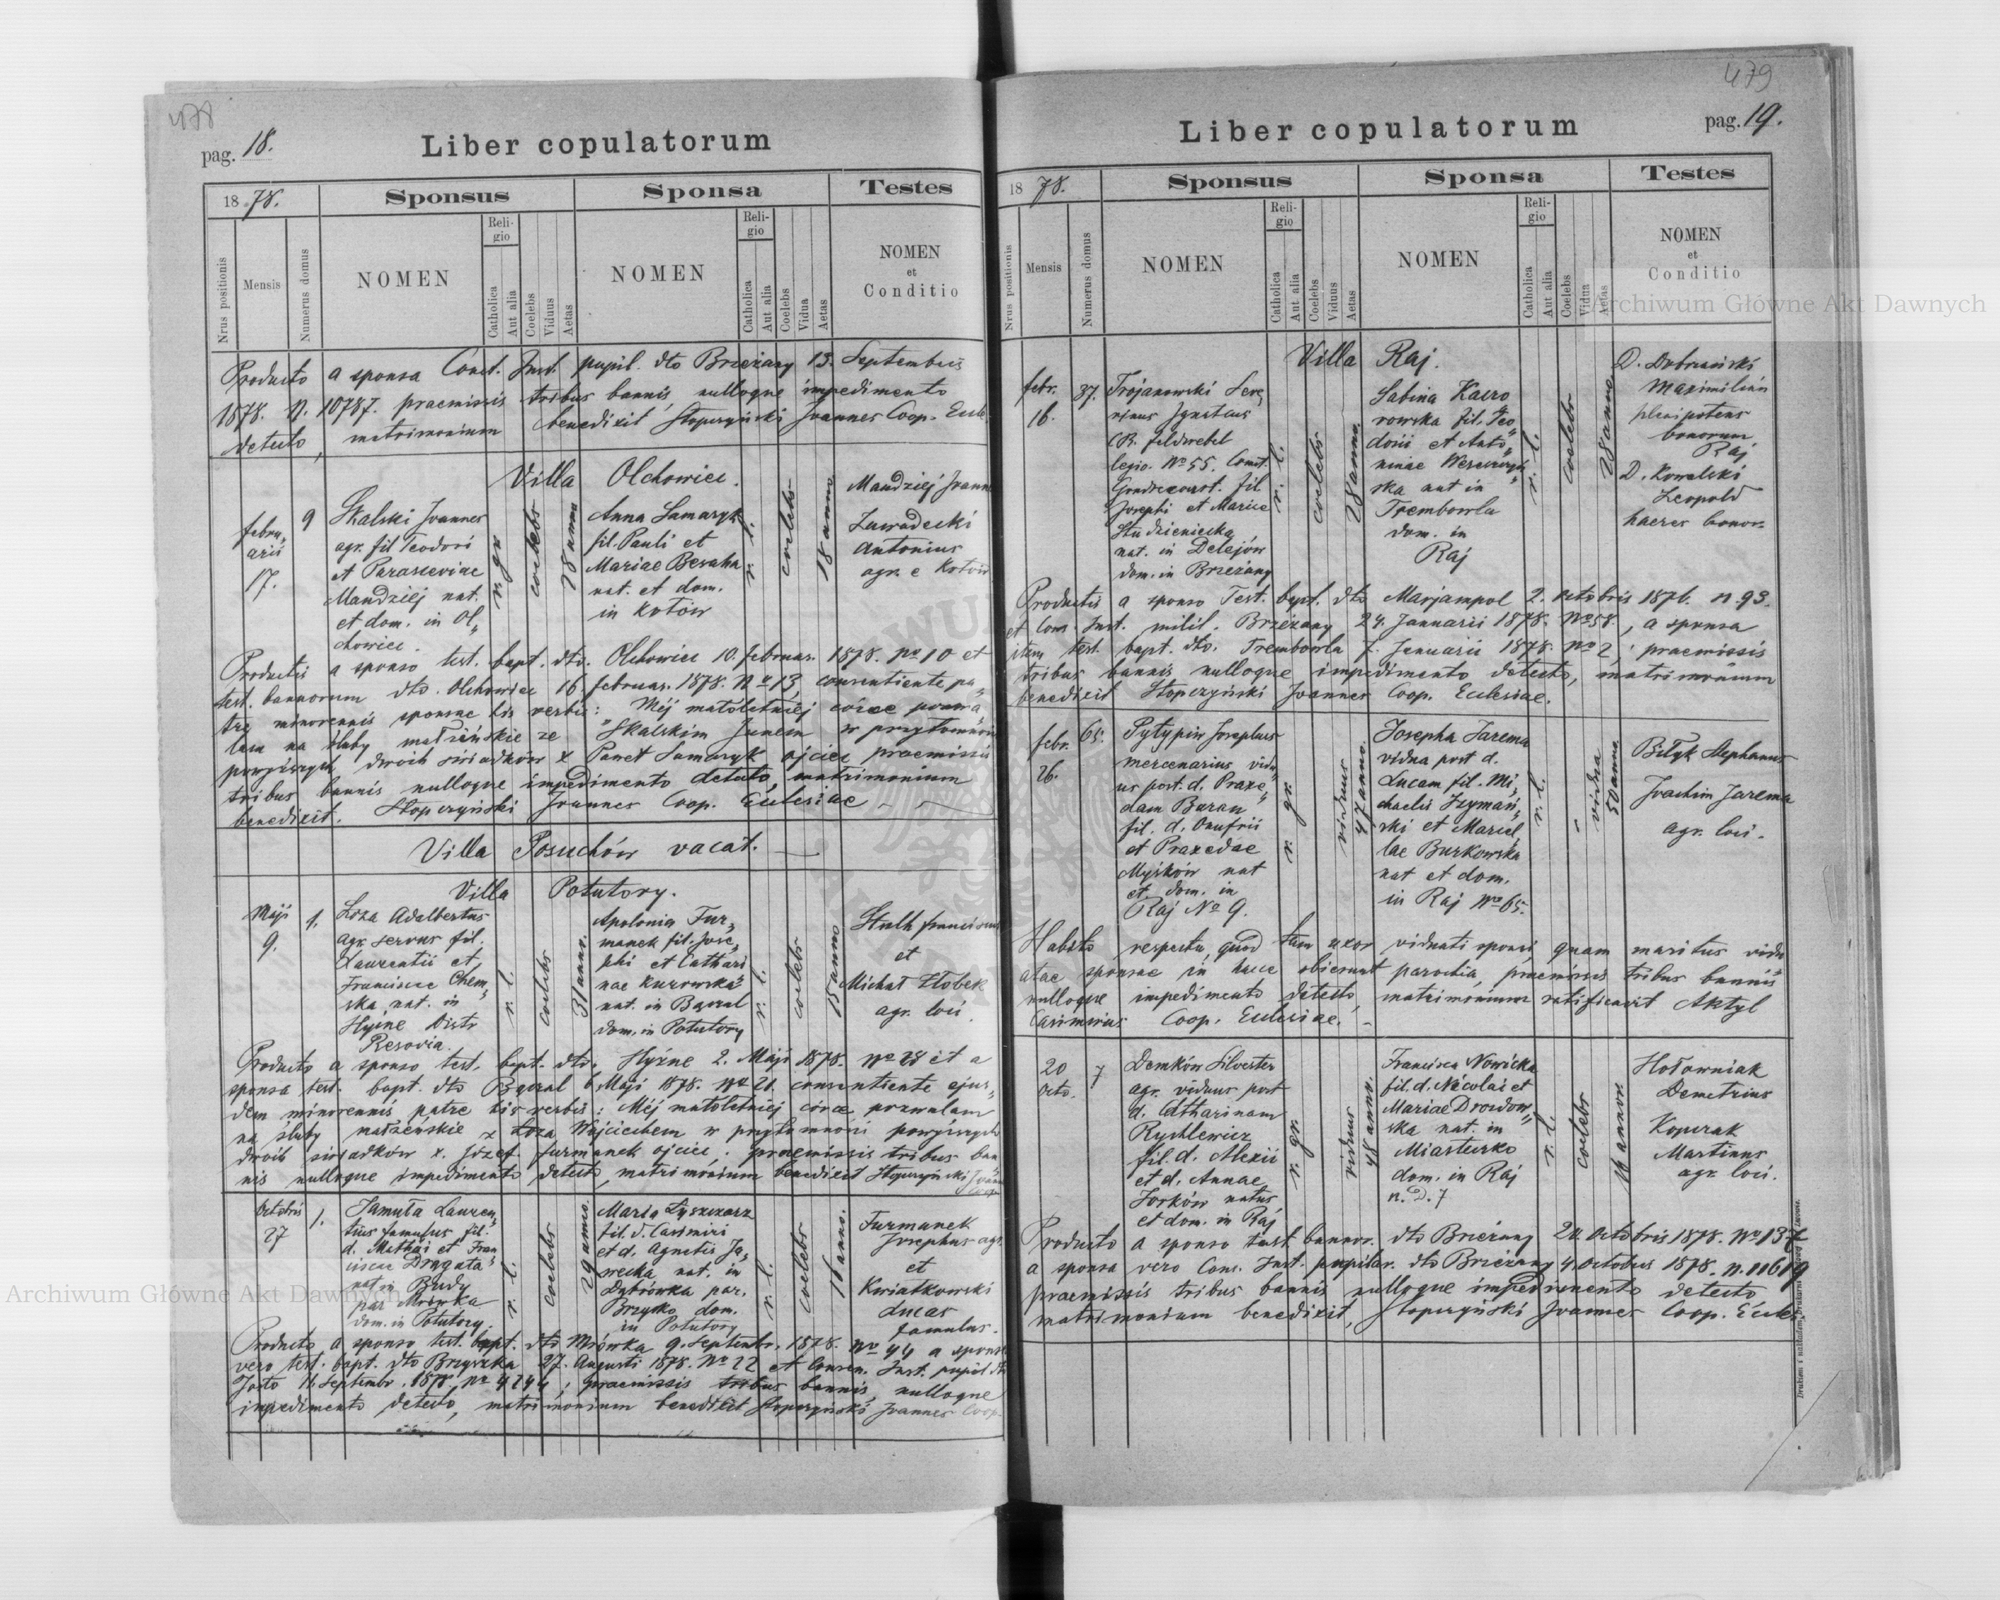 478
pag. 18.
Liber copulatorum
18 78.
Sponsus
Sponsa
Testes
Nrus positionis
Mensis
Numerus domus
NOMEN
Religio
Catholica
Aut alia
Coelebs
Viduus
Aetas
NOMEN
Religio
Catholica
Aut alia
Coelebs
Vidua
Aetas
NOMEN
et
Conditio
Producto a sponsa Cons. Inst. pupil. dto Brzeżany 13. Septembris
1878. N. 10787. praemissis tribus bannis, nulloque impedimento
detecto, matrimonium benedixit Stopczyński Joannes Coop. Eccle
Villa Olchowiec.
februarii
17.
9
Skalski Joannes
agr. fil Teodori
et Parasceviae
Mandziej nat.
et dom. in Ol„
chowiec.
r. gr.
coelebs
28 anno
Anna Samaryk
fil. Pauli et
Mariae Besaha
nat. et dom.
in Kotów
r. l.
coelebs
18 anno
Mandziej Joann
Zawadecki
Antonius
agr. e Kotów
Productis a sponso test. bapt. dto. Olchowiec 10. februar. 1878. No 10 et
test. bannorum dto. Olchowiec 16. februar. 1878. No 13, consentiente pa„
tre minorennis sponsae his verbis: Mej małoletniej córce pozwa„
lam na śluby małżeńskie ze Skalskim Janem w przytomności
powyższych dwoch świadków x Paweł Samaryk ojciec praemissis
tribus bannis nulloque impedimento detecto, matrimonium
benedixit. Stopczyński Joannes Coop. Ecclesiae
Villa Posuchów vacat.
Villa Potutory.
Maji
9.
1.
Loza Adalbertus
agr. servus fil.
Laurentii et
Franciscae Chem„
ska nat. in
Hyżne Distr
Resovia.
r. l.
coelebs
31 anno.
Apolonia Fur„
manek fil. Jose„
phi et Cathari
nae Kurowska
nat. in Bączal
dom. in Potutory
r. l.
coelebs
15 anno
Stulh franciscus
et
Michał Żłobek
agr. loci.
Producto a sponso test. bapt. dto. Hyżne 2. Maji 1878. No 28 et a
sponsa test. bapt. dto Bączal 6 Maji 1878. No 21. consentiente ejus„
dem minorennis patre his verbis: Mej małoletniej córce pozwalam
na śluby małżeńskie z Łoza Wojciechem w przytomności powyższych
dwoch świadków x. Józef furmanek ojciec. praemissis tribus ban„
nis nulloque impedimento detecto, matrimonium benedixit Stopczyński Joann
Coop.
Octobris
27
1.
Jamuła Lauren„
tius famulus fil.
d. Mathai et Fran
ciscae Drągała
nat in Budy
par Mrówka
dom. in Potutory.
r. l.
coelebs
29 anno.
Maria Łyszczarz
fil. d. Casimiri
et d. Agnetis Ja„
recka nat. in
Dąbrówka par.
Brzysko dom.
in Potutory
r. l.
coelebs
18 anno.
Furmanek
Josephus agr.
et
Kwiatkowski
Lucas
famulus.
Producto a sponso test. bapt. dto Mrówka 9. Septembr. 1878. No 44 a sponsa
vero test. bapt. dto Brzyszka 27. Augusti 1878. No 22 et Consen. Inst. pupil dto
Jasło 11. Septembr. 1878. No 4244; praemissis tribus bannis, nulloque
impedimento detecto, matrimonium benedixit Stopczyński Joannes Coop.
479
pag. 19.
Liber copulatorum
18 78.
Sponsus
Sponsa
Testes
Nrus positionis
Mensis
Numerus domus
NOMEN
Religio
Catholica
Aut alia
Coelebs
Viduus
Aetas
NOMEN
Religio
Catholica
Aut alia
Coelebs
Vidua
Aetas
NOMEN
et
Conditio
Villa Raj.
febr.
16.
37.
Trojanowski Seve„
rinus Ignatius
CR. feldwebel
legio. No 55. Comit.
Gondrecourt. fil
Josephi et Mariae
Studzieniecka
nat. in Delejów
dom. in Brzeżany
r. l.
coelebs
28 anno.
Sabina Kacro
rowska fil. Teo„
dorii et Anto„
ninae
ska nat in
Trembowla
dom. in
Raj
r. l.
coelebs
28 anno
D. Dobrzański
Maximilian
plenipotens
bonorum
Raj
D. Kowalski
Leopold
haeres bonor.
Productis a sponso Test. bapt. dto Marjampol 2. octobris 1876. n. 93.
et Cons. Inst. milit. Brzeżany 24. Januarii 1878. No 58, a sponsa
item test. bapt. dto. Trembowla 7. Januarii 1878. No 2; praemissis
tribus bannis nulloque impedimento detecto, matrimonium
benedixit Stopczyński Joannes Coop. Ecclesiae.
febr.
26.
65.
Pytypiw Josephus
mercenarius vidu
us post. d. Praxe„
dam Baran
fil. d. Onufrii
et Praxedae
Myśków nat
et dom. in
Raj No 9.
r. gr.
viduus
47 anno.
Josepha Jarema
vidua post d.
Lucam fil. Mi„
chaelis Szymań„
ski et Mariel„
lae Burkowska
nat et dom.
in Raj No 65.
r. l.
vidua
50 anno
Biłyk Stephanus
Joachim Jarema
agr. loci.
Habito respectu, quod tam uxor viduati sponsi, quam maritus vidu
atae sponsae in hacce obierunt parochia, praemissis tribus bannis
nulloque impedimento detecto, matrimonium ratificavit Aktyl
Casimirus Coop. Ecclesiae.
20
octo.
7
Demków Silvester
agr. viduus post
d. Catharinam
Rychlewicz
fil. d. Alexii
et d. Annae
Jorków natus
et dom. in Raj
r. gr.
viduus
48 anno.
Francisca Nowicka
fil. d. Nicolai et
Mariae Drozdow„
ska nat. in
Miasteczko
dom. in Raj
n. D. 7
r. l.
coelebs
18 annor.
Hołowniak
Demetrius
Koperak
Martinus
agr. loci.
Producto a sponso test bannor. dto Brzeżany 20. Octobris 1878. No 137
a sponsa vero Cons. Inst. pupilar. dto Brzeżany 4. Octobris 1878. n. 11619
praemissis tribus bannis nulloque impedimento detecto
matrimonium benedixit, Stopczyński Joannes Coop. Eccles
Archiwum Główne Akt Dawnych
Archiwum Główne Akt Dawnych